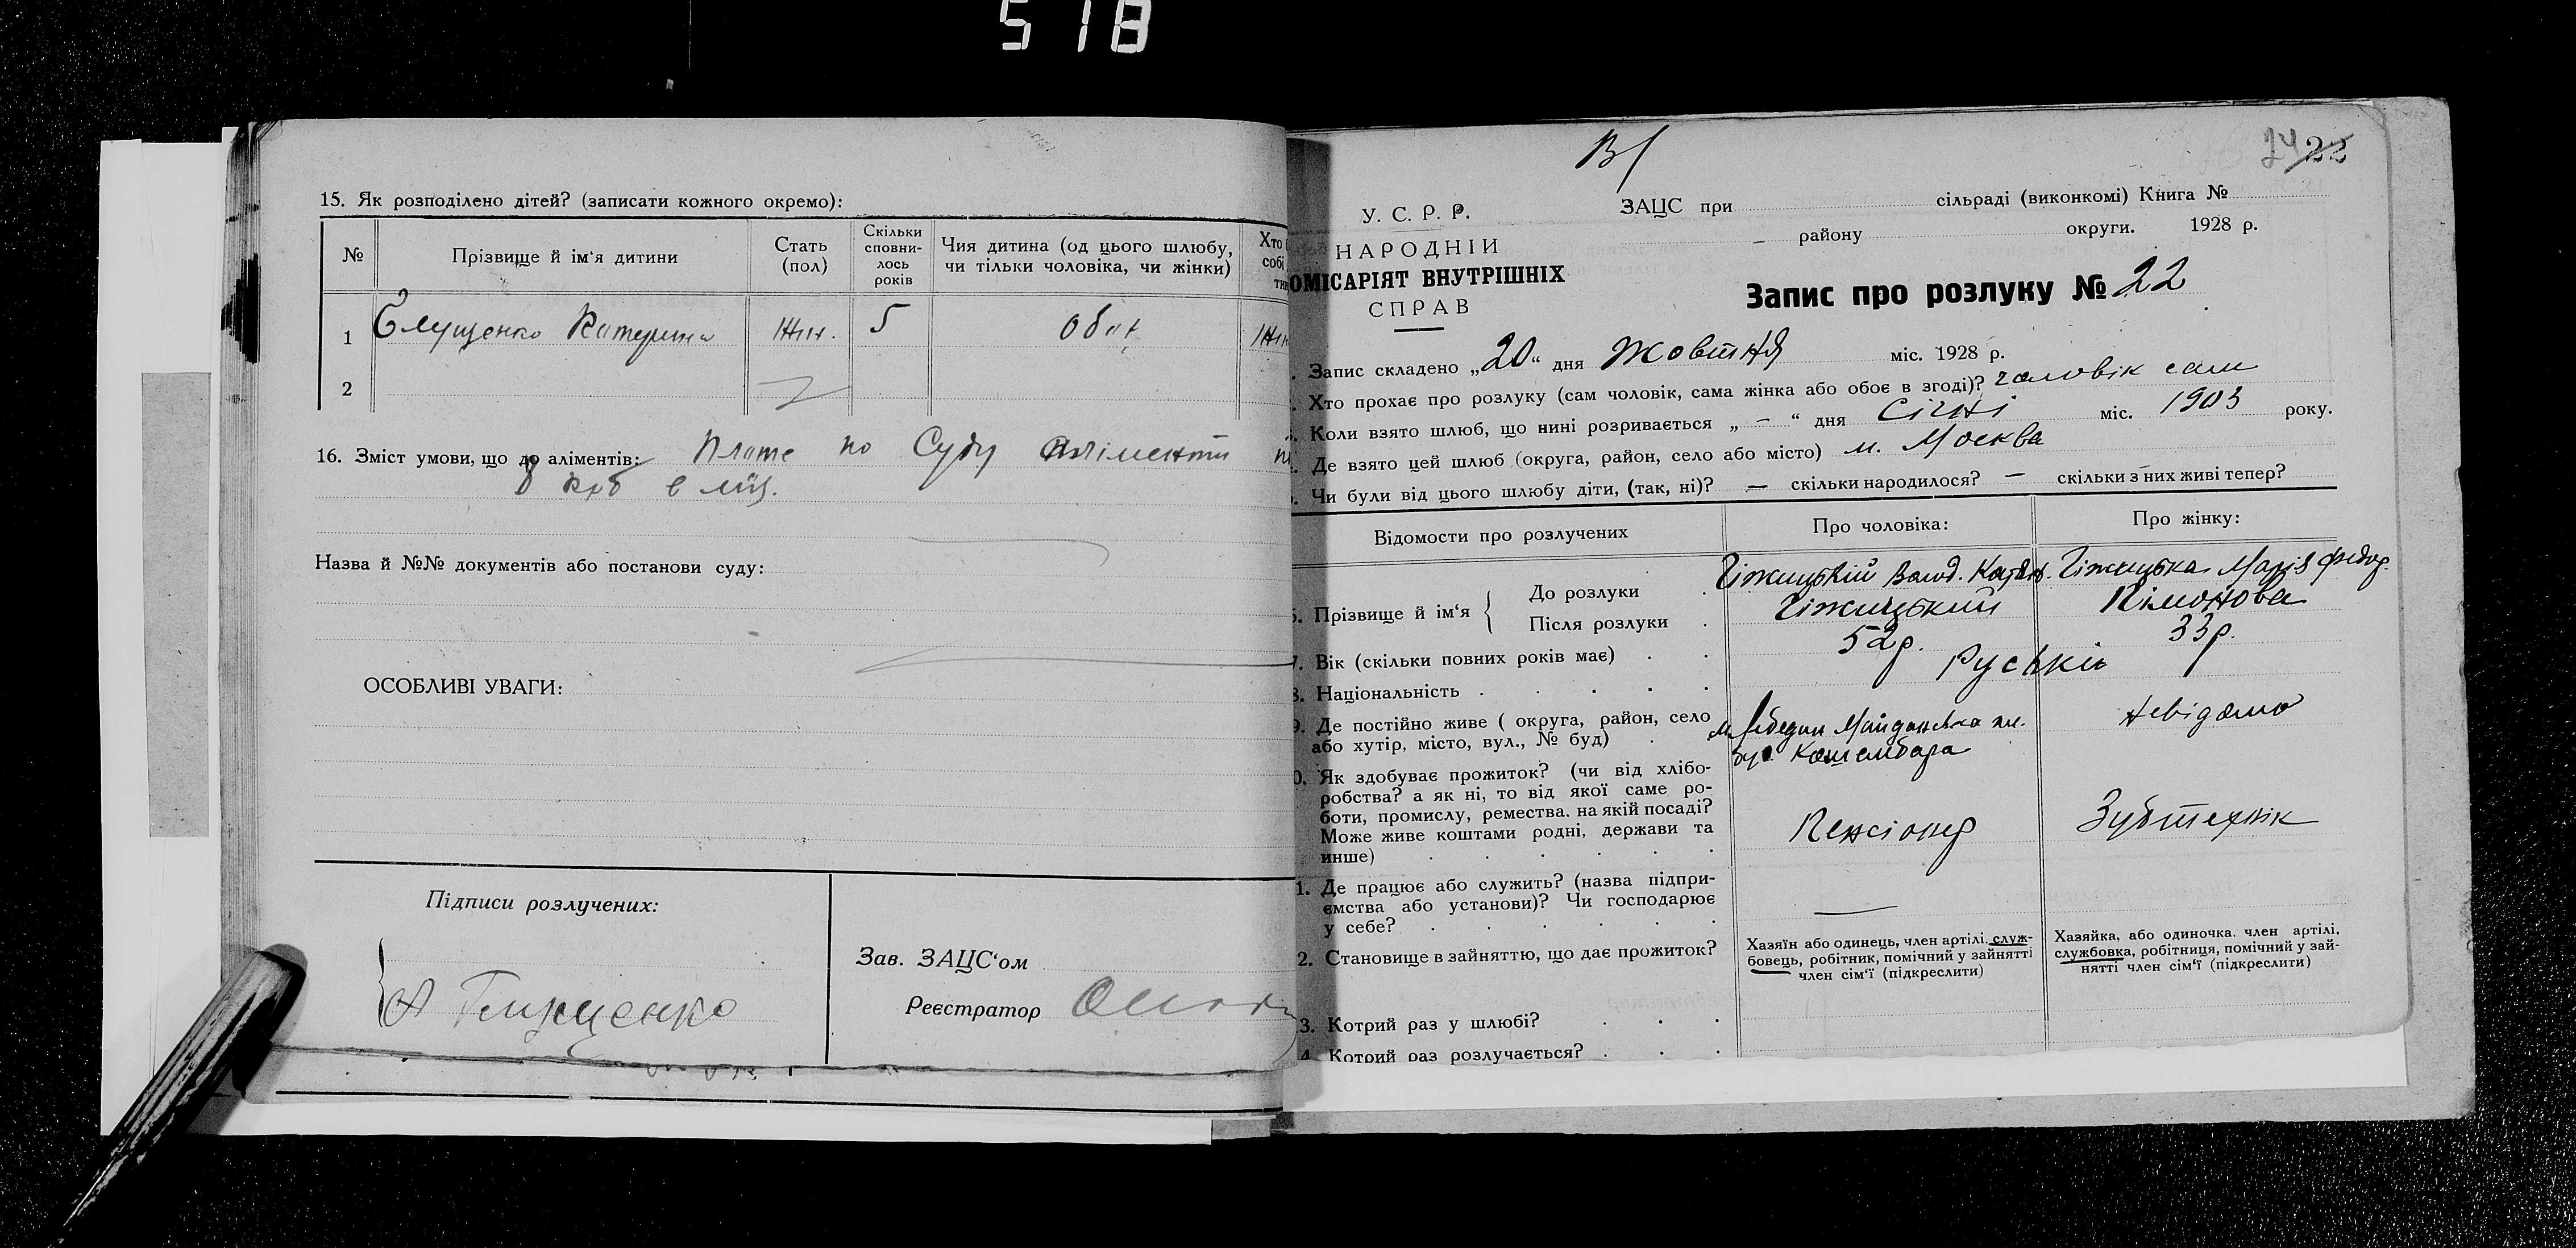 518
15. Як розподілено дітей? (записати кожного окремо):
№
Прізвище й ім'я дитини
Стать (пол)
Скільки сповни-лось років
Чия дитина (од цього шлюбу, чи тільки чоловіка, чи жінки)
Хто
собі
1 Глущенко Катерина жін. 5
2
16. Зміст умови, що до аліментів: Плате по Суду аліменти
8 крб в міс.
Назва й №№ документів або постанови суду:
ОСОБЛИВІ УВАГИ:
Підписи розлучених:
Глущенко
Зав. ЗАЦС'ом
Реєстратор
24 22
У. С. Р. Р.
НАРОДНІЙ
ОМІСАРІЯТ ВНУТРІШНІХ
СПРАВ
ЗАЦС при сільраді (виконкомі) Книга №
району округи. 1928 р.
Запис про розлуку № 22
Запис складено „20“ дня Жовтня міс. 1928 р.
Хто прохає про розлуку (сам чоловік, сама жінка або обоє в згоді)? чоловік сам
Коли взято шлюб, що нині розривається „ – “ дня Січні міс. 1903 року.
Де взято цей шлюб (округа, район, село або місто) м. Москва
Чи були від цього шлюбу діти, (так, ні)? — скільки народилося? — скільки з них живі тепер?
Відомости про розлучених
Про чоловіка:
Про жінку:
Прізвище й ім'я
До розлуки
Гіжицький Волод.
Гіжицька Марія Федор.
Після розлуки
Гіжицький
Кімонова
7. Вік (скільки повних років має)
52р.
33р.
8. Національність
Руські
9. Де постійно живе ( округа, район, село
або хутір, місто, вул., № буд)
м Лебедин Майданська пл.
невідомо
0. Як здобуває прожиток? (чи від хлібо-
робства? а як ні, то від якої саме ро-
боти, промислу, ремества. на якій посаді?
Може живе коштами родні, держави та
инше)
Пенсіонер
Зубтехнік
1. Де працює або служить? (назва підпри-
ємства або установи)? Чи господарює
у себе?
—
2. Становище в зайняттю, що дає прожиток?
Хазяїн або одинець, член артілі, служ-
бовець, робітник, помічний у зайнятті
член сім'ї (підкреслити)
Хазяйка, або одиночка. член артілі,
службовка, робітниця, помічний у зай-
нятті член сім'ї (підкреслити)
3. Котрий раз у шлюбі?
4. Котрий раз розлучається?